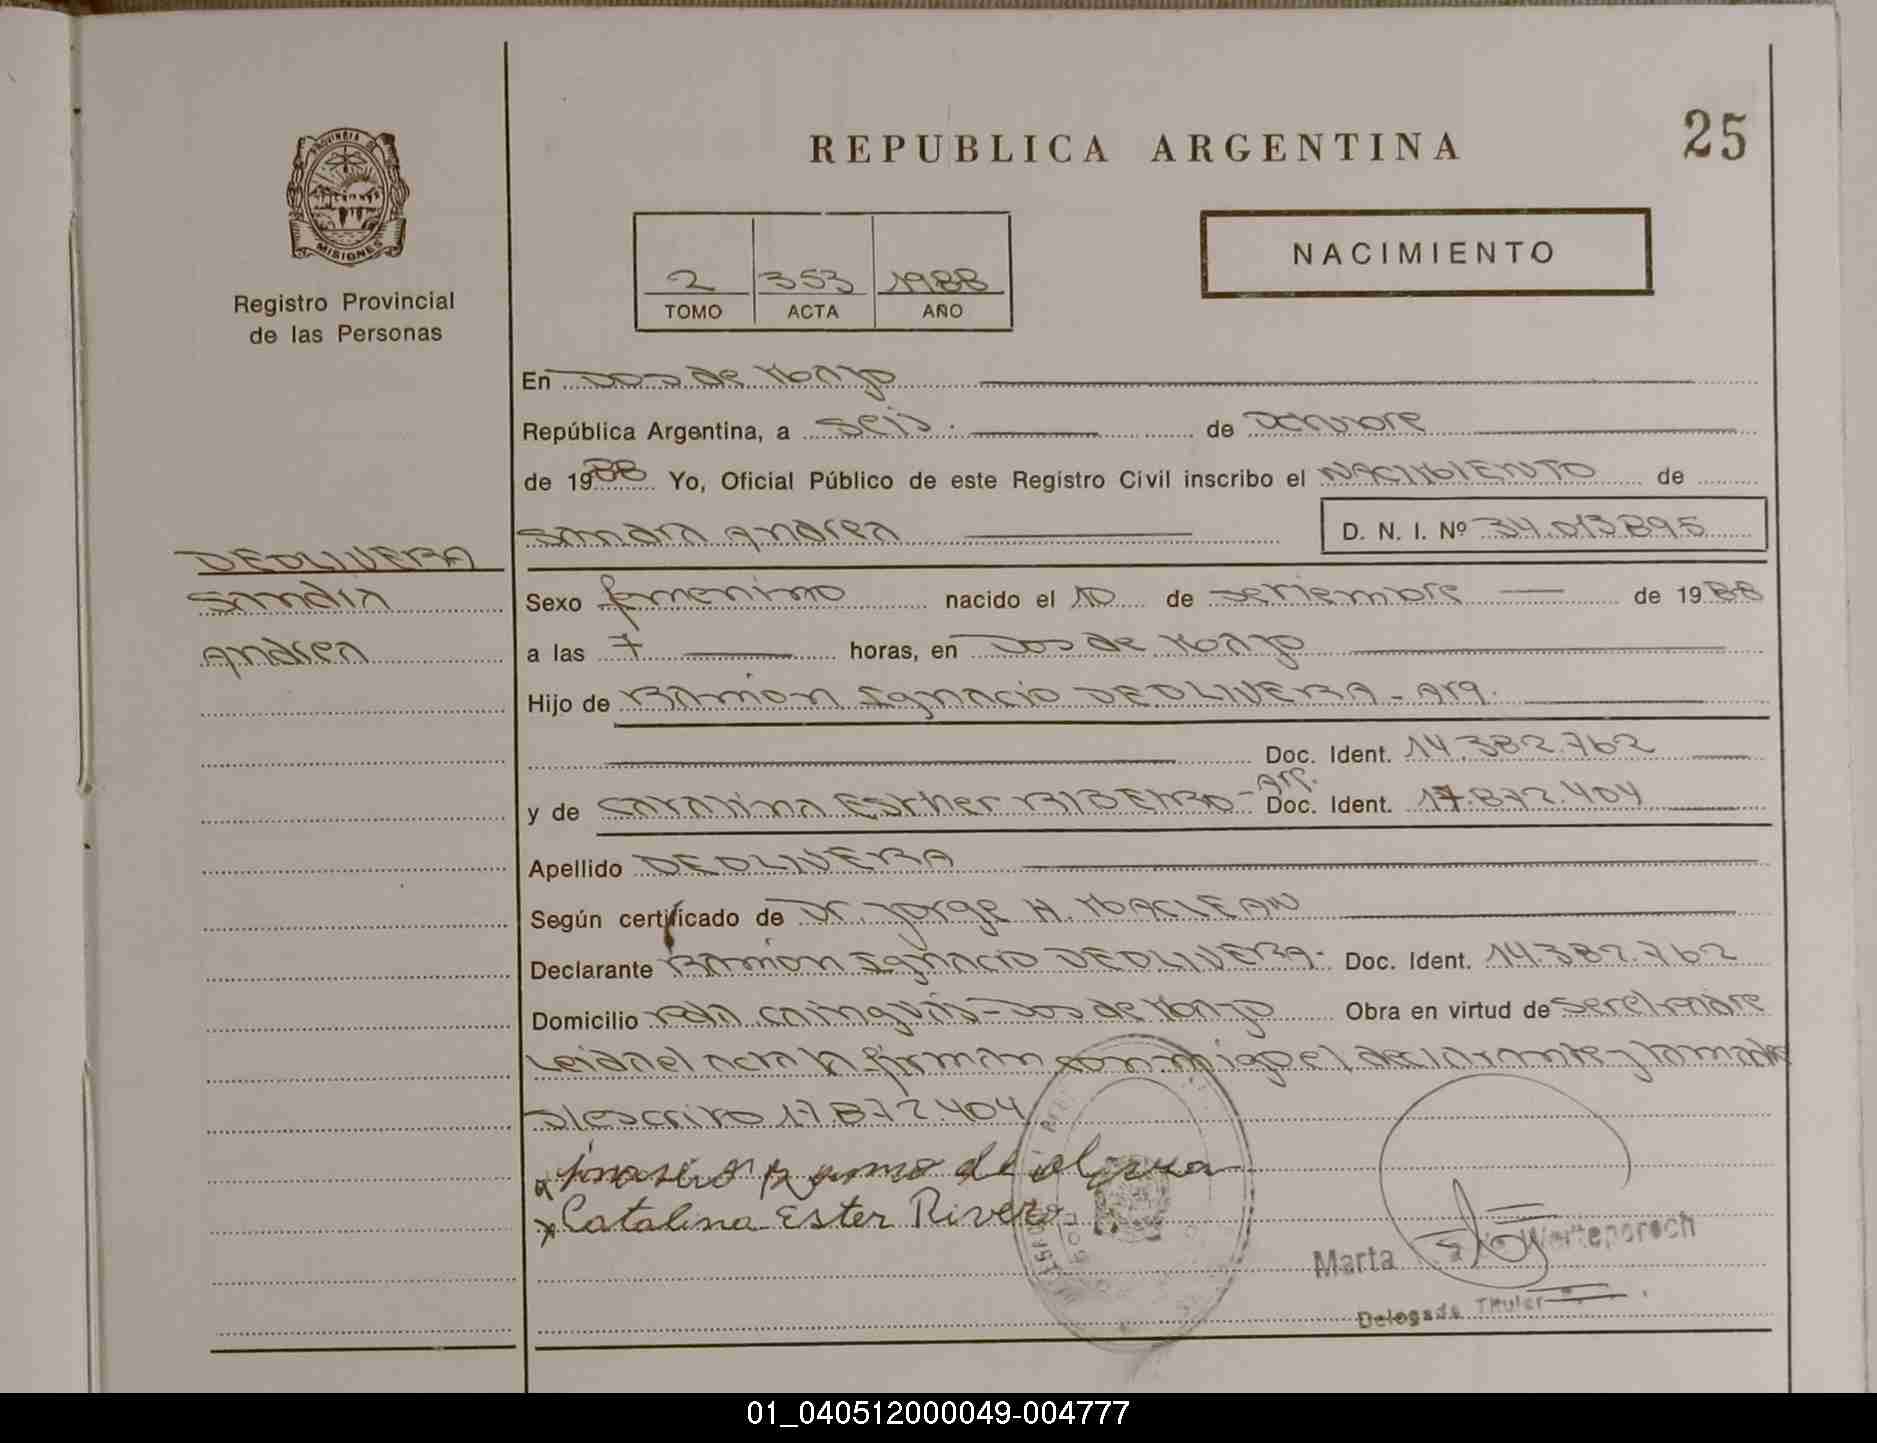 25
REPUBLICA ARGENTINA
PROVINCIA DE
MISIONES
NACIMIENTO
Registro Provincial
de las Personas
2 353 1988
TOMO ACTA AÑO
En Dos de Mayo
República Argentina, a seis.- de Octubre
de 1988 Yo, Oficial Público de este Registro Civil inscribo el NACIMIENTO de
Sandra Andrea D. N. I. Nº 34.013.895
DEOLIVERA
Sandra
Andrea
Sexo femenino nacido el 10 de Setiembre de 1988
a las 7 horas, en Dos de Mayo
Hijo de Ramón Ignacio DEOLIVERA - Arg.
Doc. Ident. 14.382.762
y de Catalina Esther RIBEIRO - Arg. Doc. Ident. 17.872.404
Apellido DEOLIVERA
Según certificado de Dr. Jorge H. MACLEAN
Declarante Ramón Ignacio DEOLIVERA.- Doc. Ident. 14.382.762
Domicilio Pdje Cainguás - Dos de Mayo Obra en virtud de ser el padre
Leida el acta la firman conmigo el declarante y la madre
S/escrito 17.872.404
x de olivera
x Catalina Ester Rivero
Marta Werteporoch
Delegada Titular
01_040512000049-004777